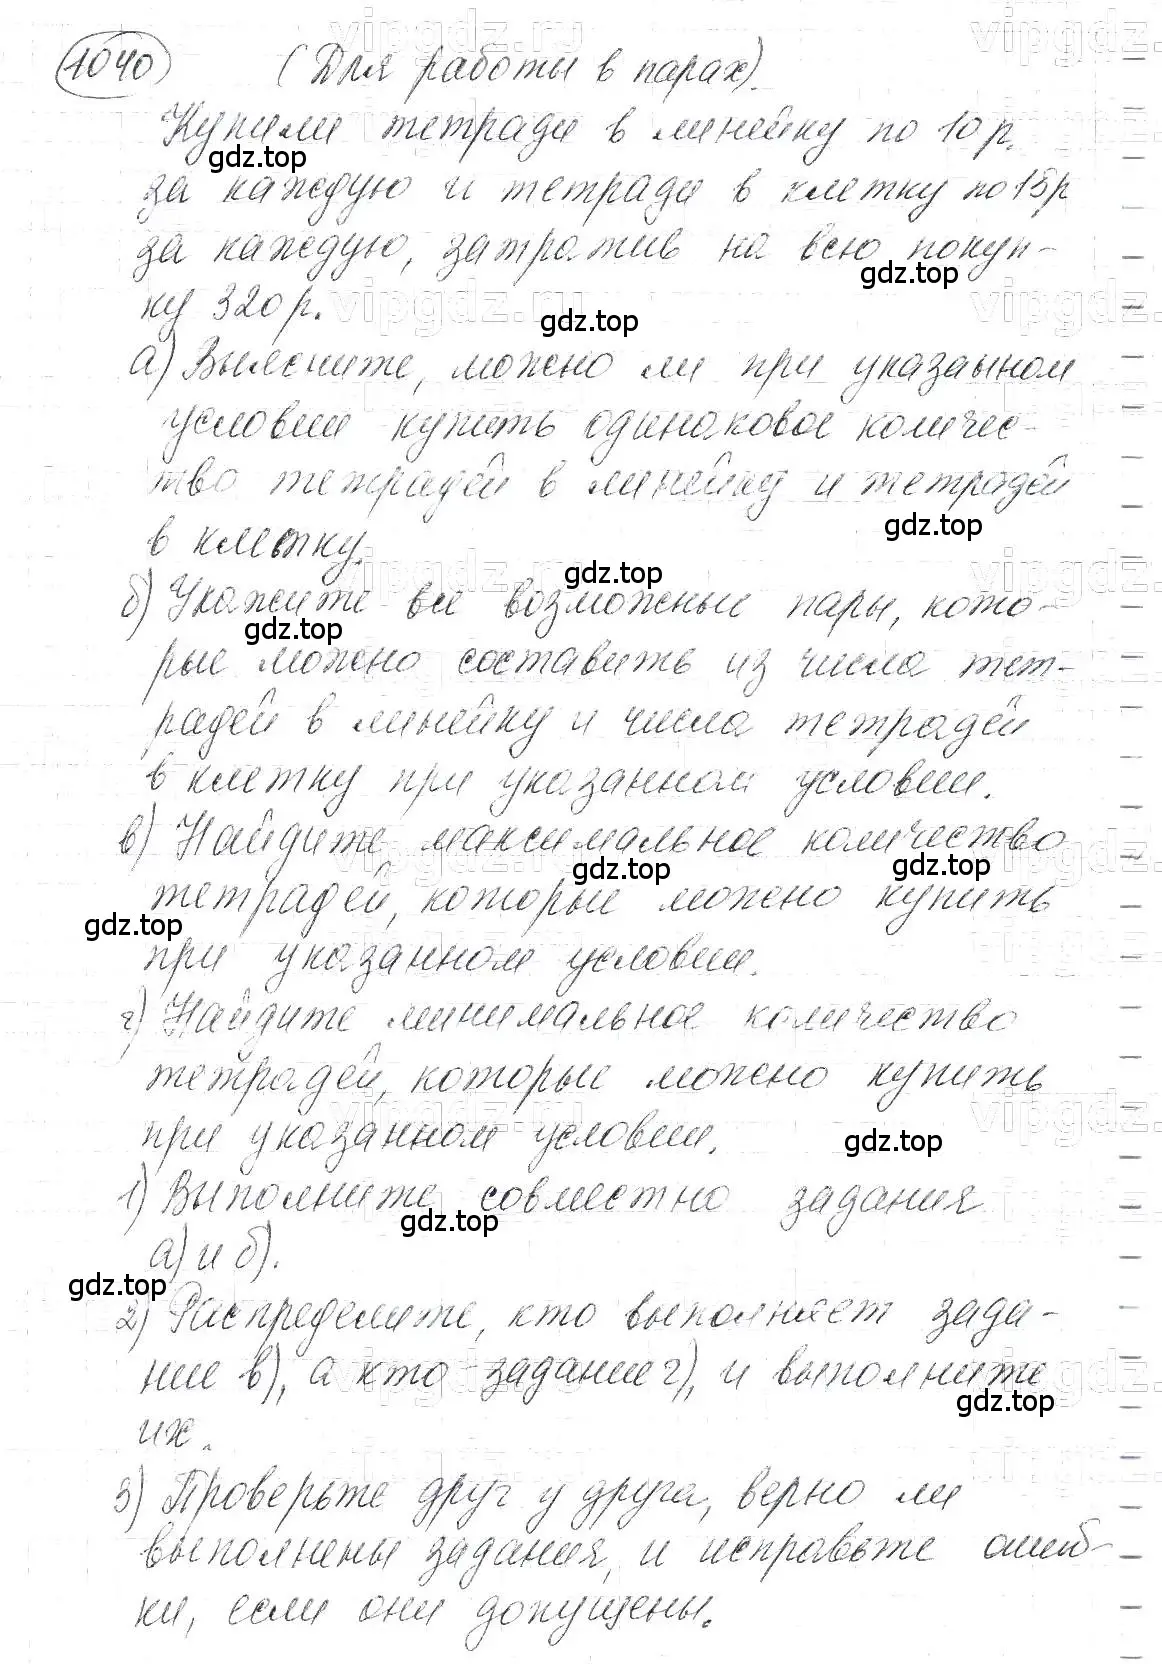 1040 (Для работы в парах).
Купили тетради в линейку по 10 р.
gdz.top
за каждую и тетради в клетку по 15 р
за каждую, затратив на всю покуп-
gdz.top
ку 320 р.
gdz.top
а) Выясните, можно ли при указаыном
условии купить одинаковое количес-
тво тетрадей в линейку и тетрадей
gdz.top
в клетку.
gdz.top
б) Укажите все возможные пары, кото-
gdz.top
рые можно составить из числа тет-
радей в линейку и числа тетрадей
в клетку при указанном условии.
в) Найдите максимальное количество
gdz.top gdz.top
тетрадей, которые можно купить
gdz.top
при указанном условии.
г) Найдите минимальное количество
тетрадей, которые можно купить
при указанном условии.
gdz.top
1) Выполните совместно задания
gdz.top
а) и б).
gdz.top
2) Распределите, кто выполняет зада-
ние в), а кто задание г), и выполните
gdz.top
их.
3) Проверьте друг у друга, верно ли
выполнены задания, и исправьте ошиб-
ки, если они допущены.
vipgdz.ru